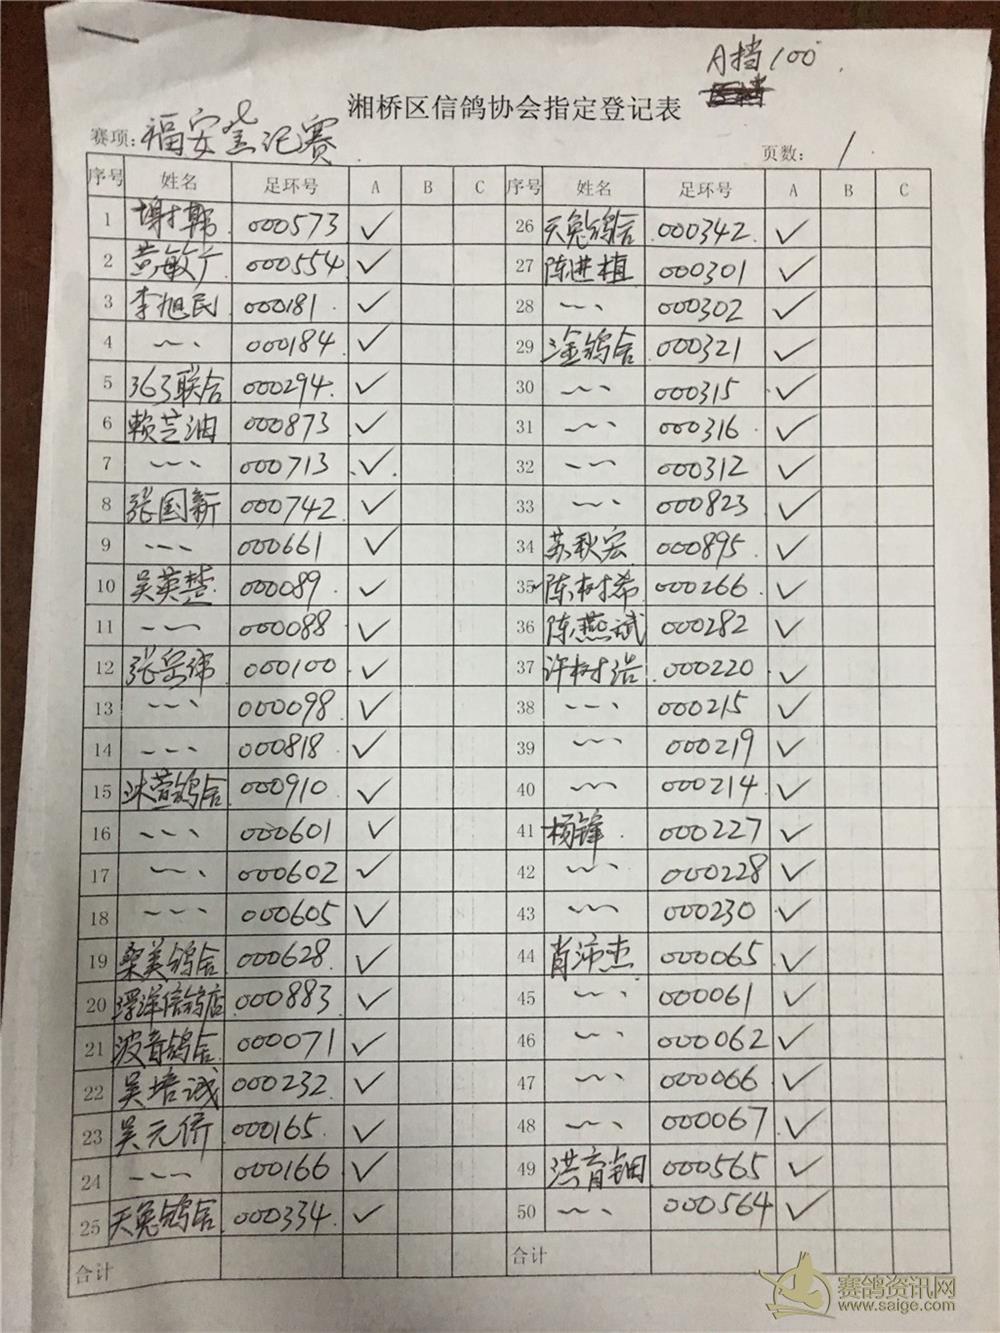 A挡100
湘桥区信鸽协会指定登记表
赛项:福安登记赛 页数: 1
序号 姓名 足环号 A B C 序号 姓名 足环号 A B C
1 000573 ✓ 26 天兔鸽舍 000342 ✓
2 黄敏广 000554 ✓ 27 陈进植 000301 ✓
3 李旭民 000181 ✓ 28 ~~、 000302 ✓
4 ~~、 000184 ✓ 29 淦鸽舍 000321 ✓
5 363联合 000294 ✓ 30 ~~、 000315 ✓
6 赖芝油 000873 ✓ 31 ~~、 000316 ✓
7 ~~、 000713 ✓ 32 ~~、 000312 ✓
8 张国新 000742 ✓ 33 ~~、 000823 ✓
9 ~~、 000661 ✓ 34 苏秋宏 000895 ✓
10 吴英楚 000089 ✓ 35 陈树希 000266 ✓
11 ~~、 000088 ✓ 36 陈燕斌 000282 ✓
12 000100 ✓ 37 许树浩 000220 ✓
13 ~~、 000098 ✓ 38 ~~、 000215 ✓
14 ~~、 000818 ✓ 39 ~~、 000219 ✓
15 鸽舍 000910 ✓ 40 ~~、 000214 ✓
16 ~~、 000601 ✓ 41 杨锋 000227 ✓
17 ~~、 000602 ✓ 42 ~~、 000228 ✓
18 ~~、 000605 ✓ 43 ~~、 000230 ✓
19 荣美鸽舍 000628 ✓ 44 肖沛杰 000065 ✓
20 浮洋信鸽店 000883 ✓ 45 ~~、 000061 ✓
21 波音鸽舍 000071 ✓ 46 ~~、 000062 ✓
22 吴培诚 000232 ✓ 47 ~~、 000066 ✓
23 吴元侨 000165 ✓ 48 ~~、 000067 ✓
24 ~~、 000166 ✓ 49 洪育钿 000565 ✓
25 天兔鸽舍 000334 ✓ 50 ~~、 000564 ✓
合计 合计
赛鸽资讯网
www.saige.com